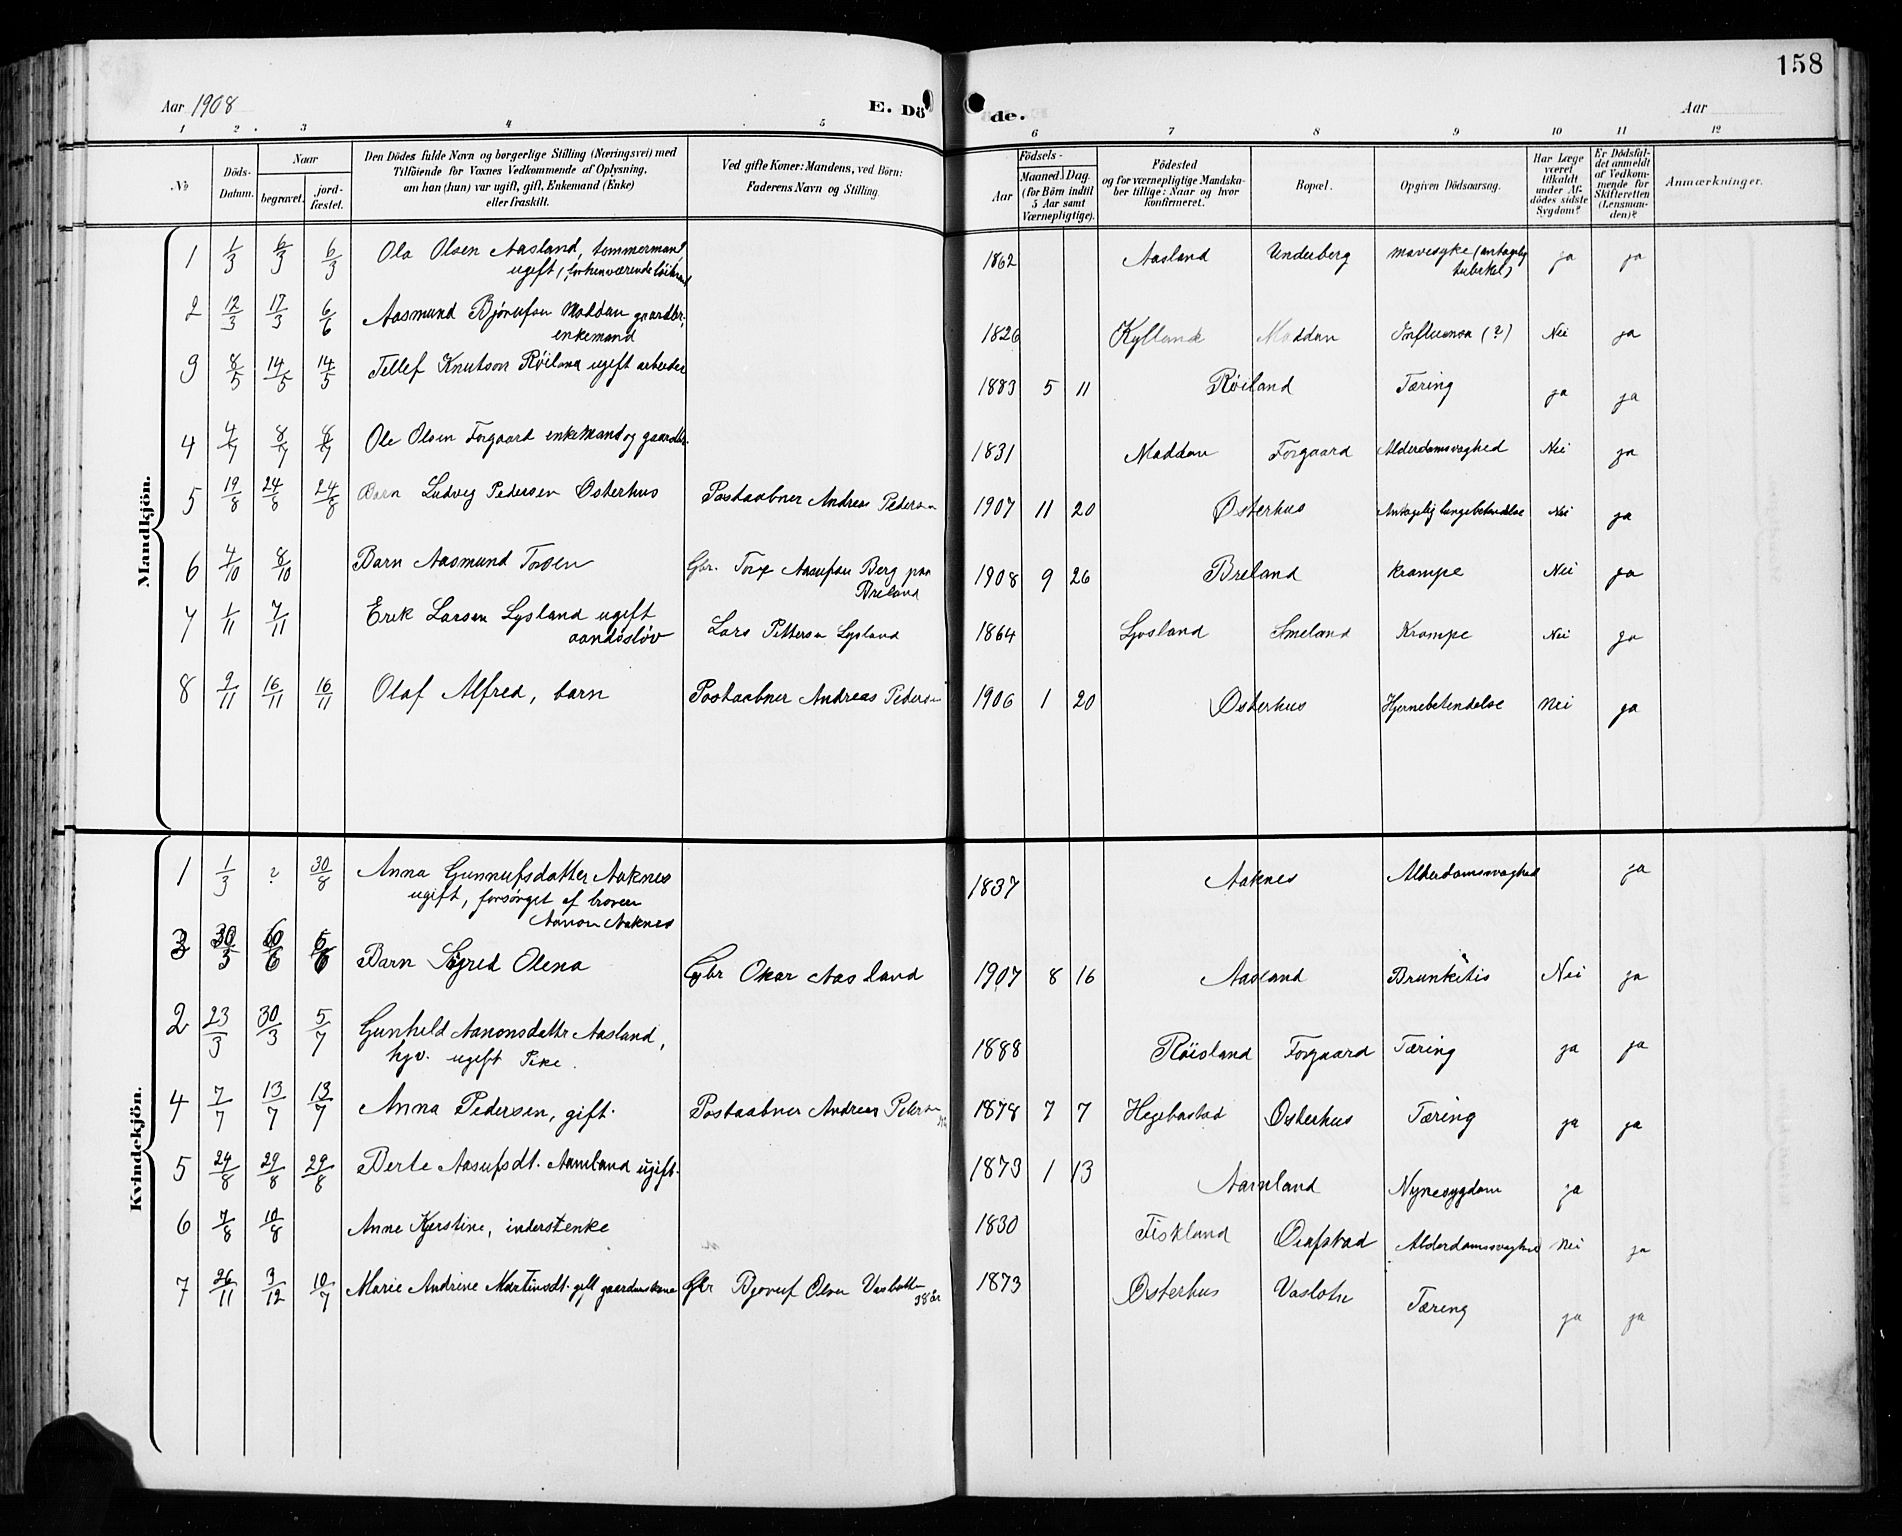 158
Aar 1908
E. Dö
de.
Aar
1 2. 3 4 5 6 7 8 9 10 11 12
No
Döds-
Datum.
Naar
begravet.
jord-
fæstet.
Den Dödes fulde Navn og borgerlige Stilling (Næringsvei) med
Tilföiende for Voxnes Vedkommende af Oplysning,
om han (hun) var ugift, gift, Enkemand (Enke)
eller fraskilt.
Ved gifte Koner: Mandens, ved Börn:
Faderens Navn og Stilling.
Födsels-
Aar
Maaned. Dag.
(for Börn indtil
5 Aar samt
Værnepligtige).
Födested
og for værnepligtige Mandska-
ber tillige: Naar og hvor
konfirmeret.
Bopæl.
Opgiven Dödsaarsag.
Har Læge
været
tilkaldt
under Af-
dödes sidste
Sygdom?
Er Dödsfal-
det anmeldt
af Vedkom-
mende for
Skifteretten
(Lensman-
den)?
Anmærkninger.
Mandkjön.
1 1/3 6/3 6/3 Ola Olsen Aasland, tømmermand 1862 Aasland Underberg mavesyke (antagelig ja ja
ugift, forhenværende tuberkel)
2 12/3 17/3 6/6 Aasmund Bjørnfsen Moddan gaardbr, 1826 Kylland Moddan Influensa (?) Nei ja
enkemand
3 8/5 14/5 14/5 Tellef Knutson Røiland ugift arbeider 1883 5 11 Røiland Tæring ja ja
4 4/7 8/7 8/7 Ole Olsen Forgaard enkemand og gaardbr. 1831 Moddan Forgaard Alderdomsvaghed Nei ja
5 19/8 24/8 24/8 Barn Ludvig Pedersen Østerhus Postaabner Andreas Pedersen 1907 11 20 Østerhus Antagelig lungebetendelse Nei ja
6 4/10 8/10 Barn Aasmund Torsen Gbr. Torje Aanufsen Berg paa 1908 9 26 Breland krampe Nei ja
Breland
7 1/11 7/11 Erik Larsen Lysland ugift Lars Pettersen Lysland 1864 Ljosland Smeland Krampe Nei ja
aandssløv
8 9/11 16/11 16/11 Olaf Alfred, barn Postaabner Andreas Pedersen 1906 1 20 Østerhus Hjernebetendelse Nei ja
Kvindekjön.
1 1/3 ? 30/8 Anna Gunnufsdatter Aaknes 1837 Aaknes Alderdomssvaghed ja
ugift, forsørget af broren
Aanon Aaknes
3 Barn Sigrid Olena Gbr Oskar Aasland 1907 8 16 Aasland Brunkitis Nei ja
2 23/3 30/3 5/7 Gunhild Aanonsdattr Aasland, 1888 Røisland Forgaard Tæring ja ja
hjv. ugift Pike.
4 7/7 13/7 13/7 Anna Pedersen, gift. Postaabner Andreas Pedersen 1878 7 7 Hegebostad Østerhus Tæring ja ja
5 24/8 29/8 29/8 Berte Aasufsdt. Aamland ugift. 1873 1 13 Aamland Nyresygdom ja
6 7/8 10/8 Anne Kjerstine, inderstenke 1830 Fiskland Oiafstad Alderdomssvaghed Nei ja
7 26/11 3/12 10/7 Marie Andrine Martinsdt. gift gaardmskone Gbr Bjoruf Olsen 1873 Østerhus Tæring ja ja
38 år